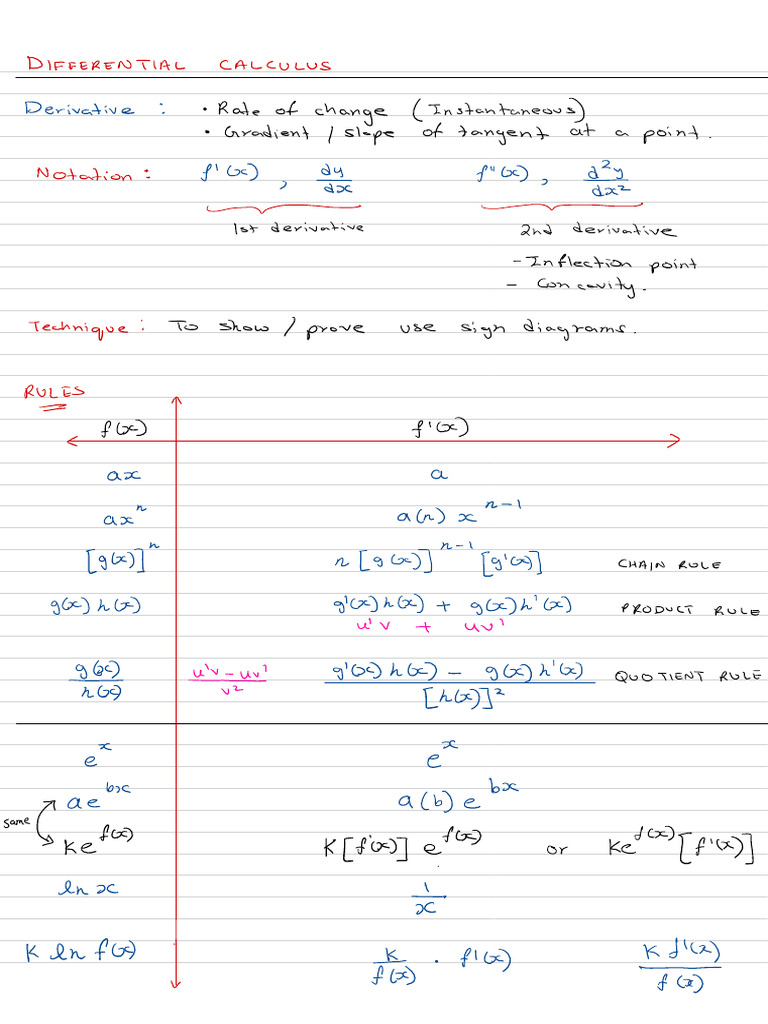 DIFFERENTIAL CALCULUS
Derivative : • Rate of change (Instantaneous)
• Gradient / slope of tangent at a point.
Notation : f'(x) , dy/dx f"(x) , d²y/dx²
1st derivative 2nd derivative
- Inflection point
- Concavity.
Technique : To show / prove use sign diagrams.
RULES
f(x) f'(x)
ax a
axⁿ a(n) xⁿ⁻¹
[g(x)]ⁿ n [g(x)]ⁿ⁻¹ [g'(x)] CHAIN RULE
g(x) h(x) g'(x) h(x) + g(x) h'(x) PRODUCT RULE
u'v + uv'
g(x)/h(x) u'v - uv'/v² g'(x) h(x) - g(x) h'(x)/[h(x)]² QUOTIENT RULE
eˣ eˣ
ae^bx a(b) e^bx
same
ke^f(x) K[f'(x)] e^f(x) or ke^f(x) [f'(x)]
ln x 1/x
K ln f(x) K/f(x) · f'(x) K f'(x)/f(x)